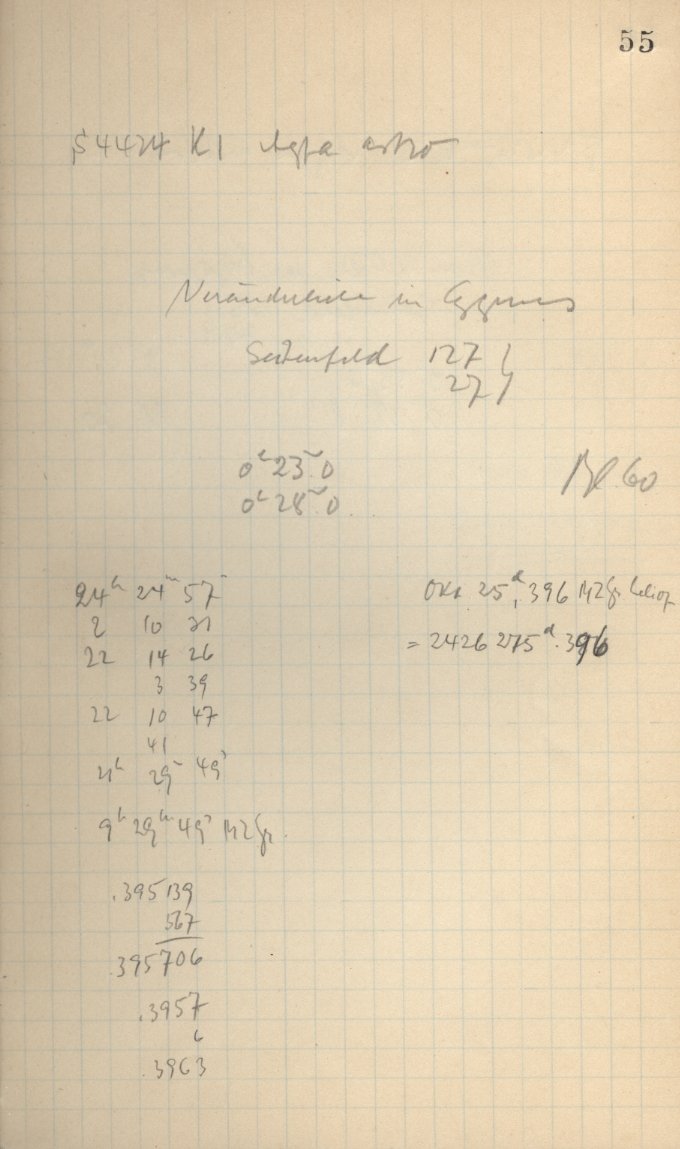 55
S4424 K1 Agfa astro
Veränderliche in Cygnus
Seitenfeld 127 }
27 }
0ʰ 23ᵐ.0
0ʰ 28ᵐ.0
Bl. 60
24ʰ 24ᵐ 57ˢ
2 10 31
22 14 26
3 39
22 10 47
41
21ʰ 29ᵐ 49ˢ
9ʰ 29ᵐ 49ˢ MZGr.
.395139
567
.395706
.3957
6
.3963
Okt 25ᵈ.396 MZGr helioz
= 2426275ᵈ.396